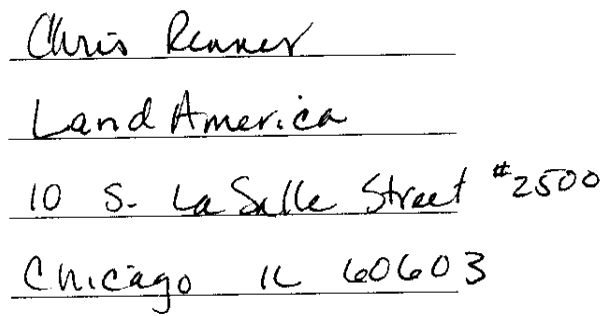 Chris Renner
Land America
10 S. LaSalle Street #2500
Chicago IL 60603